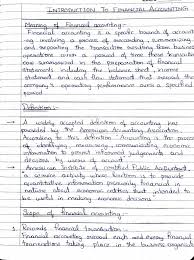 INTRODUCTION TO FINANCIAL ACCOUNTING
Meaning of Financial accounting:-
Financial accounting is a specific branch of account-
ing involving a process of recording, summarizing
and reporting the transactions resulting from business
operations over a period of time. these transactions
are summarized in the preparation of financial
statements, including the balance sheet, income
statement and cash flow statement that record the
company's operating performance over a specified
period.
Definition:-
→ A widely accepted definition of accounting has
provided by the American Accounting Association
According to this definition "Accounting is the process
of identifying, measuring, communicating economic
information to permit informed judgements and
decisions by users of account".
→ American Institute of certified Public Accountant
"a service activity whose function is to provide
quantitative information primarily financial in
nature about economic entities that intended to
be useful in making economic decisions"
Scope of financial accounting:-
1. Records financial transaction:-
Financial accounting records each and every financial
transactions taking place in the business organization